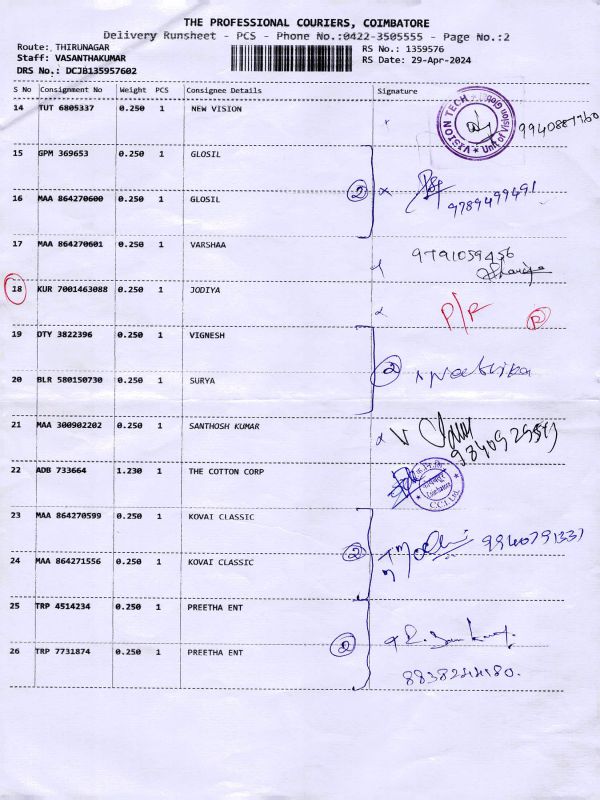 THE PROFESSIONAL COURIERS, COIMBATORE
Delivery Runsheet - PCS - Phone No.:0422-3505555 - Page No.:2
Route: THIRUNAGAR RS No.: 1359576
Staff: VASANTHAKUMAR RS Date: 29-Apr-2024
DRS No.: DCJB135957602
S No Consignment No Weight PCS Consignee Details Signature
14 TUT 6805337 0.250 1 NEW VISION
VISION TECH
Unit of Vision Group
9940887960
15 GPM 369653 0.250 1 GLOSIL
16 MAA 864270600 0.250 1 GLOSIL
2 9789499491
17 MAA 864270601 0.250 1 VARSHAA 9791059456
18 KUR 7001463088 0.250 1 JODIYA P/R P
19 DTY 3822396 0.250 1 VIGNESH
20 BLR 580150730 0.250 1 SURYA
2
21 MAA 300902202 0.250 1 SANTHOSH KUMAR
22 ADB 733664 1.230 1 THE COTTON CORP
Coimbatore
23 MAA 864270599 0.250 1 KOVAI CLASSIC
24 MAA 864271556 0.250 1 KOVAI CLASSIC
2 9940791337
25 TRP 4514234 0.250 1 PREETHA ENT
26 TRP 7731874 0.250 1 PREETHA ENT
2